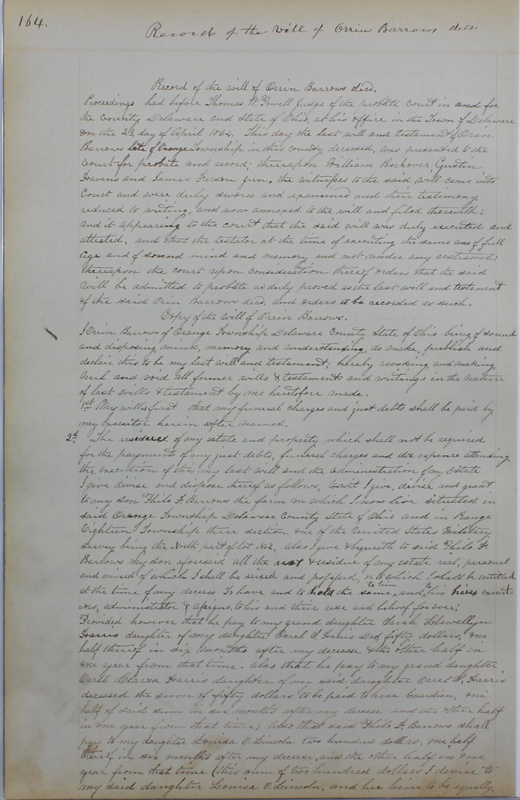 164.
Record of the Will of Orrin Barrows decd.
Record of the will of Orrin Barrows died,
Proceedings had before Thomas W. Powell judge of the probate court in and for
the County Delaware and State of Ohio, at his office in the Town of Delaware
on the 23 day of April 1864. This day the last will and testament of Orrin
Barrows late of Orange Township in this county deceased, was presented to the
Court for probate and record; thereupon William
and James jun, the witnesses to the said will came into
Court and were duly sworn and examined and their testimony
reduced to writing, and now annexed to the will and filed therewith;
and it appearing to the court that the said will was duly executed and
attested, and that the testator at the time of executing the same was of full
age and of sound mind and memory and not under any restraint;
thereupon the court upon consideration thereof orders that the said
will be admitted to probate as duly proved as the last will and testament
of the said Orrin Barrows died, and orders to be recorded as such.
Copy of the Will of Orrin Barrows.
I Orrin Barrows of Orange Township Delaware County State of Ohio being of sound
and disposing mind, memory and understanding, do make, publish and
declare this to be my last will and testament; hereby revoking and making
null and void all former wills & testaments and writings in the nature
of last wills & testament by me heretofore made.
1st My will is first that my funeral charges and just debts shall be paid by
my executor herein after named.
2d. The residue of my estate and property which shall not be required
for the payment of my just debts, funeral charges and the expence attending
the execution of this my last will and the administration of my Estate
I give devise and dispose thereof as follows, to wit I give, devise and grant
to my son Philo F. Barrows the farm on which I now live situated in
said Orange Township Delaware County State of Ohio and in Range
Eighteen Township three section one of the United States Military
Survey being the North part of Lot No 2, also I give & bequeath to said Philo F.
Barrows my son aforesaid all the rest & residue of my estate real, personal
and mixed of which I shall be seized and possessed, or to which I shall be entitled
at the time of my decease To have and to hold the same to him and his heirs execut
ors, administrator & assigns, to his and their use and behoof forever;
Provided however that he pay to my grand daughter Sarah Llewellyn
Harris daughter of my daughter Orrel S. Harris decd fifty dollars, one
half thereof in six months after my decease & the other half in
one year from that time. Also that he pay to my grand daughter
Orrel Clarssa Harris daughter of my said daughter Orrel S. Harris
deceased the sum of fifty dollars to be paid to her Guardian, one
half of said sum in six months after my decease and the other half
in one year from that time; Also that said Philo F. Barrows shall
pay to my daughter Louisa O. Lincoln two hundred dollars, one half
thereof in six months after my decease, and the other half in one
year from that time (this sum of two hundred dollars I devise to
my said daughter Louisa O. Lincoln, and her heirs to be equally